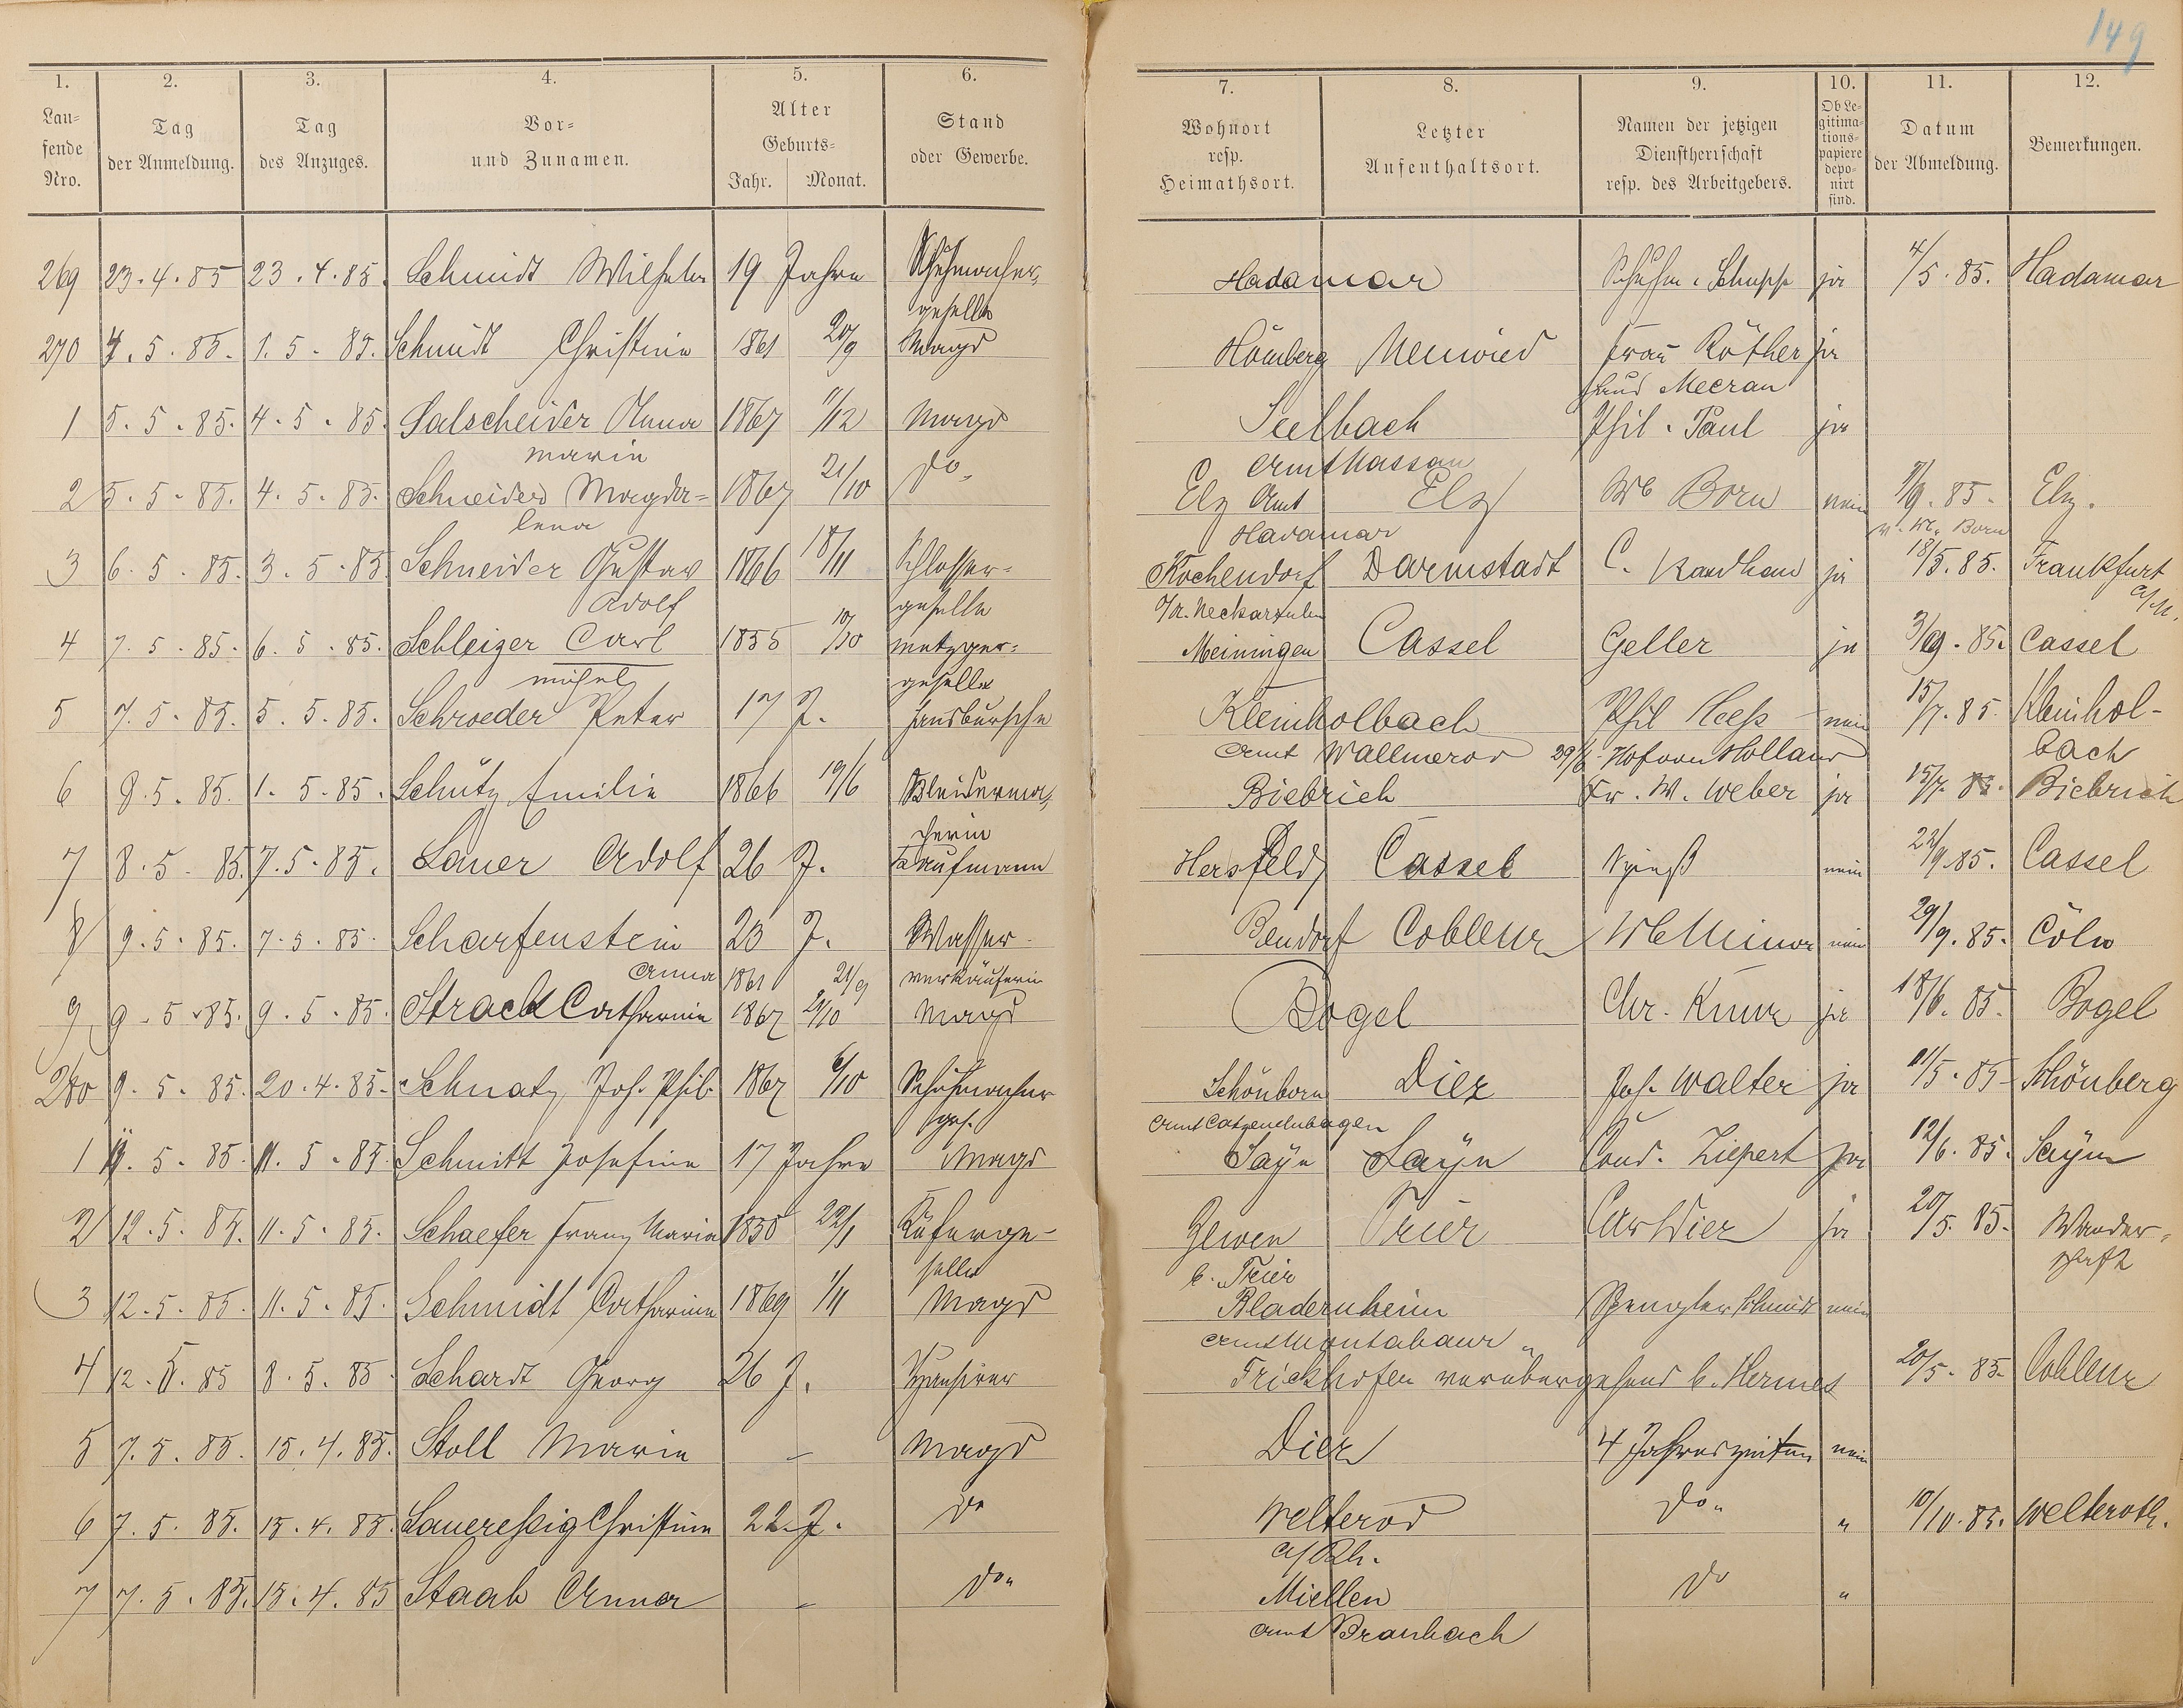 149
1. 2. 3. 4. 5. 6. 7. 8. 9. 10. 11. 12.
Lau-
fende
Nro.
Tag
der Anmeldung.
Tag
des Anzuges.
Vor-
und Zunamen.
Alter
Geburts-
Jahr. Monat.
Stand
oder Gewerbe.
Wohnort
resp.
Heimathsort.
Letzter
Aufenthaltsort.
Namen der jetzigen
Dienstherrschaft
resp. des Arbeitgebers.
Ob Le-
gitima-
tions-
papiere
depo-
nirt
sind.
Datum
der Abmeldung.
Bemerkungen.
269 23.4.85 23.4.85. Schmidt Wilhelm 19 Jahre Schuhmacher- Hadamar Schuhm. Schupp ja 4/5.85. Hadamar
geselle
270 4.5.85. 1.5.85. Schmidt Christine 1861 20/9 Magd Hömberg Neuwied Frau Röther ja
Haus Meeran
1 5.5.85. 4.5.85. Salscheider Anna 1867 11/12 Magd Seelbach Phil. Paul ja
Marie Amt Nassau
2 5.5.85. 4.5.85. Schneider Magda= 1867 21/10 do. Elz Amt Elz Wb Born nein 9/9.85. Elz.
lena Hadamar v. W. Born
3 6.5.85. 3.5.85 Schneider Gustav 1866 18/11 Schlosser= Kochendorf Darmstadt C. Kandhan ja 18/5.85. Frankfurt
Adolf geselle O/A. Neckarsulm a/M.
4 7.5.85. 6.5.85. Schleizer Carl 1855 10/10 Metzger= Meiningen Cassel Geller ja 3/9.85. Cassel
Michel geselle
5 7.5.85. 5.5.85. Schroeder Peter 17 J. Hausbursche Kleinholbach Phil Hess nein 15/7.85. Kleinhol-
Amt Wallmerod 29/6 Hof von Holland bach
6 8.5.85. 1.5.85. Schütz Emilie 1866 19/6 Kleiderma- Biebrich Fr. W. Weber ja 15/7.85. Biebrich
cherin
7 8.5.85. 7.5.85. Sauer Adolf 26 J. Kaufmann Hersfeld Cassel Spieß nein 22/9.85. Cassel
8 9.5.85. 7.5.85. Scharfenstein 23 J. Wasser- Bendorf Coblenz Wb Minor nein 29/9.85. Cöln
Anna 1861 21/9 verkäuferin
9 9.5.85. 9.5.85. Strack Catharina 1867 21/10 Magd Bogel Chr. Kunz ja 18/6.85. Bogel
280 9.5.85. 20.4.85. Schnatz Joh. Phil. 1867 6/10 Schuhmacher Schönborn Diez Joh. Walter ja 11/5.85 Schönberg
ges. Amt Catzenelnbogen
1 11.5.85. 11.5.85. Schmitt Josefine 17 Jahre Magd Sayn Sayn Cond. Ziepert ja 12/6.85. Sayn
2 12.5.85. 11.5.85. Schaefer Franz Maria 1850 22/1 Küferge- Zewen Trier Carl Vier ja 20/5.85. Wander-
selle b. Trier schaft
3 12.5.85. 11.5.85. Schmidt Catharina 1869 1/11 Magd Bladernheim Spengler Schmidt nein
Amt Montabaur
4 12.5.85 8.5.85. Schardt Georg 26 J. Hausirer Frickhofen vorübergehend b. Hermes 20/5.85. Coblenz
5 7.5.85. 15.4.85. Stoll Marie – Magd Diez 4 Jahreszeiten nein
6 7.5.85. 15.4.85. Saueressig Christine 22 J. do Welterod do " 10/10.85. Welteroth.
a/Rh.
7 7.5.85. 15.4.85 Staab Anna – do " Miellen do "
Amt Braubach